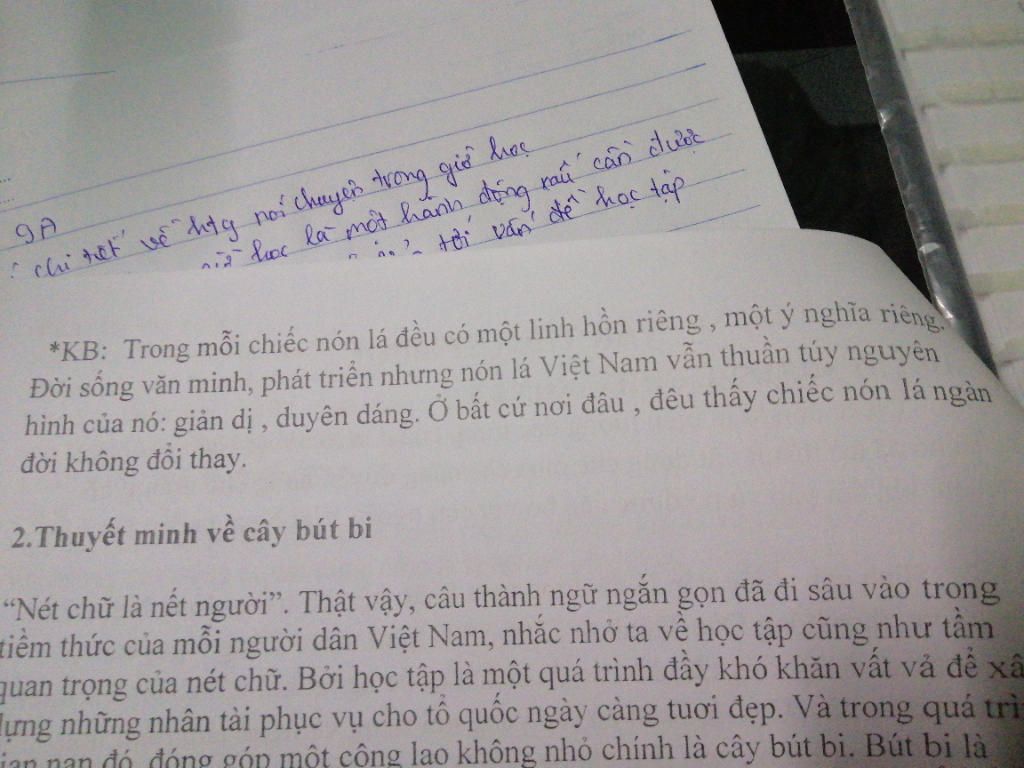 9A
chi tết về htg nói chuyện trong giờ học
học là một hành động rất cần được
tới vấn đề học tập
*KB: Trong mỗi chiếc nón lá đều có một linh hồn riêng , một ý nghĩa riêng.
Đời sống văn minh, phát triển nhưng nón lá Việt Nam vẫn thuần túy nguyên
hình của nó: giản dị , duyên dáng. Ở bất cứ nơi đâu , đêu thấy chiếc nón lá ngàn
đời không đổi thay.
2.Thuyết minh về cây bút bi
“Nét chữ là nết người”. Thật vậy, câu thành ngữ ngắn gọn đã đi sâu vào trong
tiềm thức của mỗi người dân Việt Nam, nhắc nhở ta về học tập cũng như tầm
quan trọng của nét chữ. Bởi học tập là một quá trình đầy khó khăn vất vả để xâ
dựng những nhân tài phục vụ cho tổ quốc ngày càng tuơi đẹp. Và trong quá trì
gian nan đó, đóng góp một công lao không nhỏ chính là cây bút bi. Bút bi là